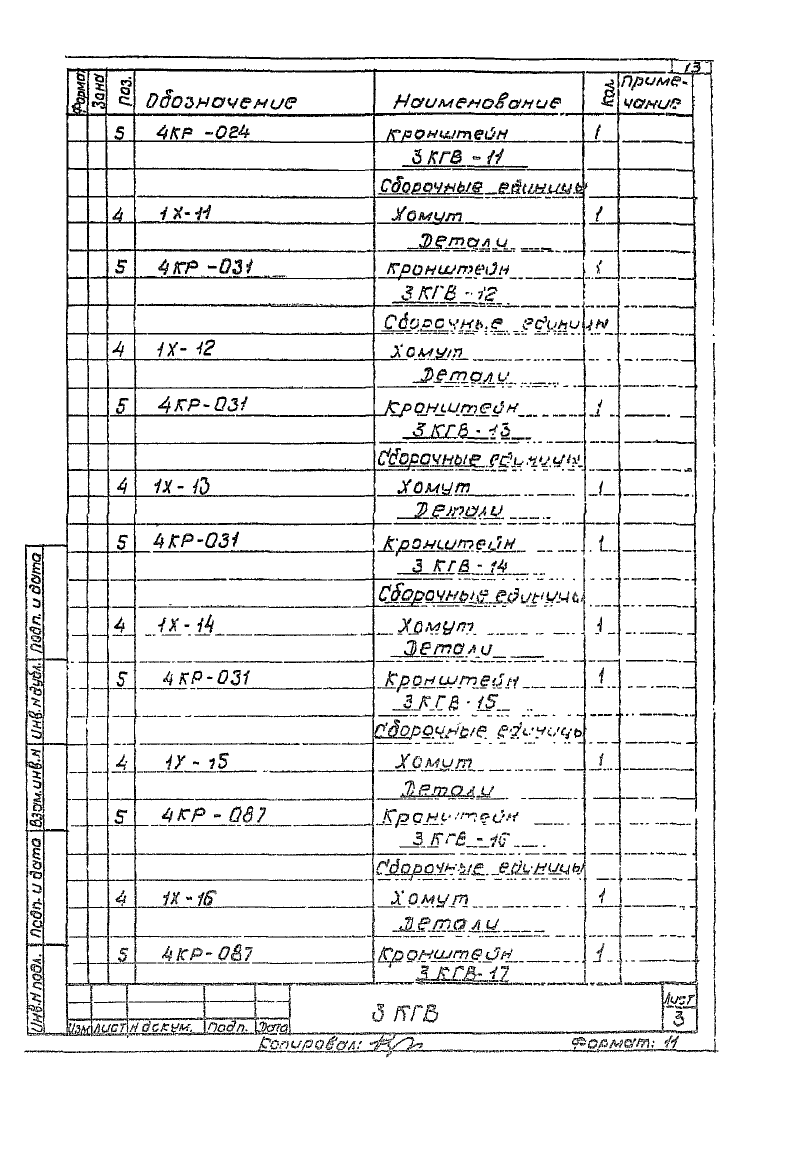 13
Формат Зона Поз. Обозначение Наименование Кол. Приме-
чание
5 4КР-024 Кронштейн 1
3 КГВ-11
Сборочные единицы
4 1Х-11 Хомут 1
Детали
5 4КР-031 Кронштейн 1
3 КГВ-12
Сборочные единицы
4 1Х-12 Хомут
Детали
5 4КР-031 Кронштейн 1
3 КГВ-13
Сборочные единицы
4 1Х-13 Хомут 1
Детали
5 4КР-031 Кронштейн 1
3 КГВ-14
Сборочные единицы
4 1Х-14 Хомут 1
Детали
5 4КР-031 Кронштейн 1
3 КГВ-15
Сборочные единицы
4 1Х-15 Хомут 1
Детали
5 4КР-087 Кронштейн
3 КГВ-16
Сборочные единицы
4 1Х-16 Хомут 1
Детали
5 4КР-087 Кронштейн 1
3 КГВ-17
Инв.N подл. Подп. и дата Взам.инв.N Инв.N дубл. Подп. и дата
Изм Лист N докум. Подп. Дата
3 КГВ
Лист
3
Копировал: Формат: 11